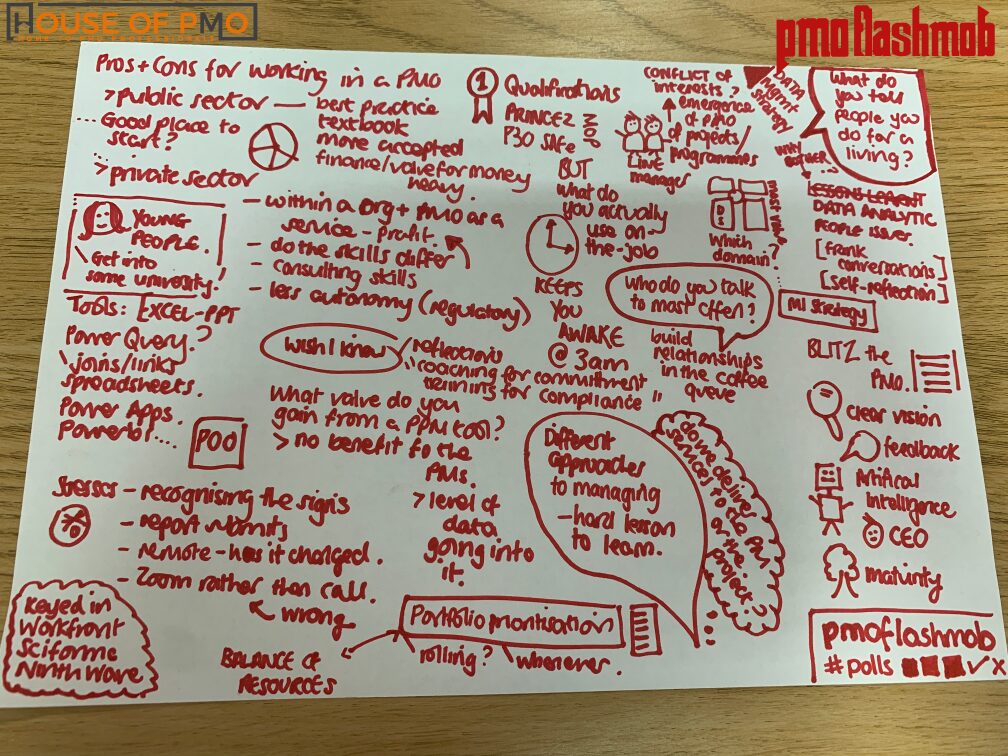 HOUSE OF PMO
pmo flashmob
Pros + Cons for working in a PMO
> public sector — best practice
textbook
more accepted
finance/value for money
heavy.
... Good place to
start?
> private sector
- within a org + PMO as a
service - profit.
- do the skills differ
- consulting skills
- less autonomy (regulatory)
YOUNG
PEOPLE.
Get into
some university!
Tools: EXCEL-PPT
Power Query?
joins/links
spreadsheets.
Power Apps.
PowerBI...
POO
wish I knew
reflections
coaching for commitment
training for compliance "
What value do you
gain from a PPM tool?
> no benefit to the
PMs.
> level of
data
going into
it.
Stresses - recognising the signs
- report submits
- remote - has it changed.
- Zoom rather than call.
wrong
Keyed in
Workfront
Sciforma
Ninth Wave
BALANCE OF
RESOURCES
Portfolio prioritisation
rolling?
whenever.
1
Qualifications
PRINCE2
P3O SAFe
MOP
BUT
what do
you actually
use on-
the-job
KEEPS
YOU
AWAKE
@ 3am
CONFLICT OF
interests?
emergence
of PMO
of projects/
programmes
Line
manager
Which
domain?
most value?
Who do you talk
to most often?
build
relationships
in the coffee
queue
Different
approaches
to managing
- hard lesson
to learn.
done deliver
services to the PM
or the
project?
DATA
mgmt
strategy
What do
you tell
people you
do for a
living?
why bother?
LESSONS LEARNT
DATA ANALYTIC
PEOPLE ISSUES.
[frank
conversations]
[self-reflection]
MI Strategy
BLITZ the
PMO.
clear vision
feedback
Artifical
Intelligence
CEO
maturity
pmoflashmob
#polls